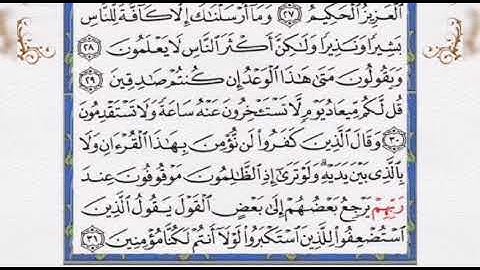 ٱلْعَزِيزُ ٱلْحَكِيمُ ٢٧ وَمَآ أَرْسَلْنَٰكَ إِلَّا كَآفَّةً لِّلنَّاسِ
بَشِيرًا وَنَذِيرًا وَلَٰكِنَّ أَكْثَرَ ٱلنَّاسِ لَا يَعْلَمُونَ ٢٨
وَيَقُولُونَ مَتَىٰ هَٰذَا ٱلْوَعْدُ إِن كُنتُمْ صَٰدِقِينَ ٢٩
قُل لَّكُم مِّيعَادُ يَوْمٍ لَّا تَسْتَـْٔخِرُونَ عَنْهُ سَاعَةً وَلَا تَسْتَقْدِمُونَ
٣٠ وَقَالَ ٱلَّذِينَ كَفَرُوا۟ لَن نُّؤْمِنَ بِهَٰذَا ٱلْقُرْءَانِ وَلَا
بِٱلَّذِى بَيْنَ يَدَيْهِ ۗ وَلَوْ تَرَىٰٓ إِذِ ٱلظَّٰلِمُونَ مَوْقُوفُونَ عِندَ
رَبِّهِمْ يَرْجِعُ بَعْضُهُمْ إِلَىٰ بَعْضٍ ٱلْقَوْلَ يَقُولُ ٱلَّذِينَ
ٱسْتُضْعِفُوا۟ لِلَّذِينَ ٱسْتَكْبَرُوا۟ لَوْلَآ أَنتُمْ لَكُنَّا مُؤْمِنِينَ ٣١